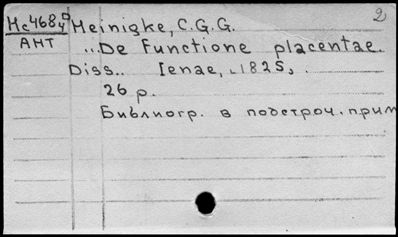 2
Mc468⁰/4 Meinigke, C.G.G.
AHT „De Functione placentae.
Diss.. Ienae, 1825,.
26 p.
Библиогр. в подстроч. прим